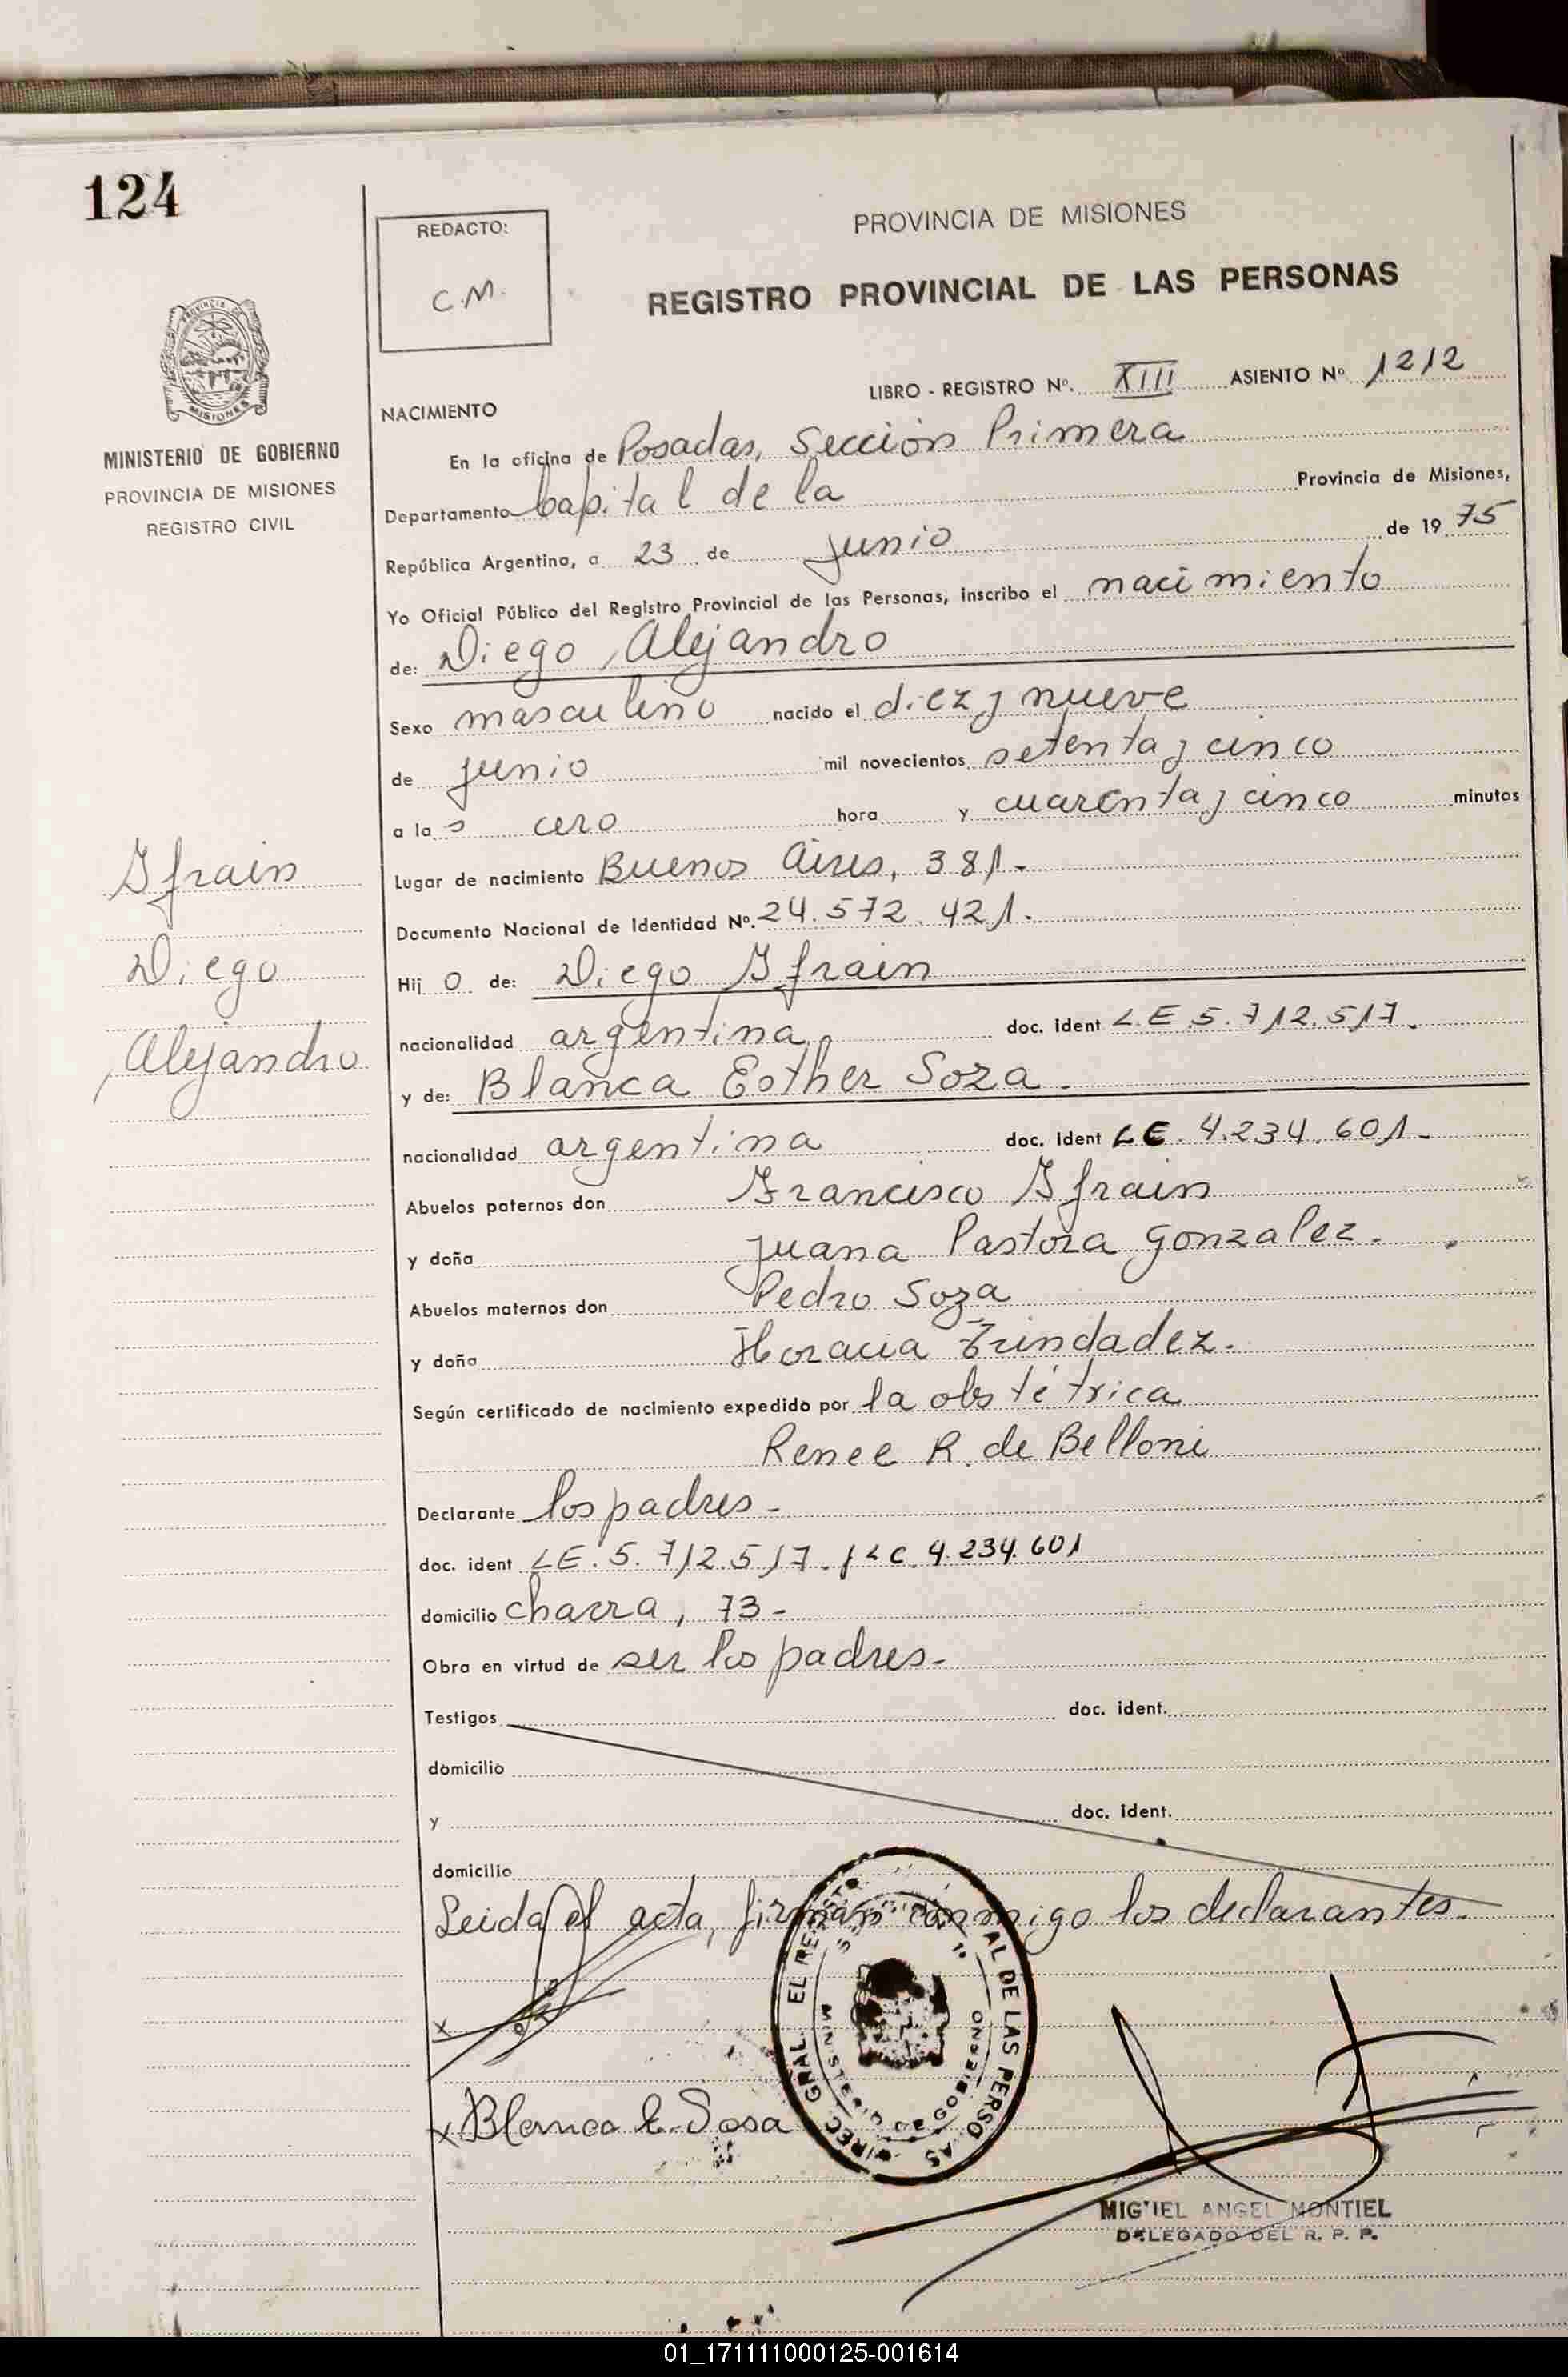 124
REDACTO:
C.M.
PROVINCIA DE MISIONES
REGISTRO PROVINCIAL DE LAS PERSONAS
PROVINCIA DE
MISIONES
MINISTERIO DE GOBIERNO
PROVINCIA DE MISIONES
REGISTRO CIVIL
LIBRO - REGISTRO Nº. XIII ASIENTO Nº 1212
NACIMIENTO
En la oficina de Posadas, Sección Primera
Departamento Capital de la Provincia de Misiones,
República Argentina, a 23 de junio de 1975
Yo Oficial Público del Registro Provincial de las Personas, inscribo el nacimiento
de: Diego Alejandro
Sexo masculino nacido el diez y nueve
de junio mil novecientos setenta y cinco
a las cero hora y cuarenta y cinco minutos
Lugar de nacimiento Buenos Aires, 381.-
Documento Nacional de Identidad Nº. 24.572.421.
Hijo de: Diego Ifrain
nacionalidad argentina doc. ident L.E 5.712.517.
y de: Blanca Esther Soza.
nacionalidad argentina doc. ident LC. 4.234.601.-
Abuelos paternos don Francisco Ifrain
y doña Juana Pastora Gonzalez.
Abuelos maternos don Pedro Soza
y doña Horacia Trindadez.
Según certificado de nacimiento expedido por la obstétrica
Renee R. de Belloni
Declarante los padres-
doc. ident LE. 5.712.517. y LC. 4.234.601
domicilio chacra, 73-
Obra en virtud de ser los padres-
Testigos doc. ident.
domicilio
y doc. ident.
domicilio
Leida el acta, firman conmigo los declarantes.
Ifrain
Diego
Alejandro
x
x Blanca E. Sosa
MINISTERIO DE GOBIERNO
MIGUEL ANGEL MONTIEL
DELEGADO DEL R. P. P.
01_171111000125-001614